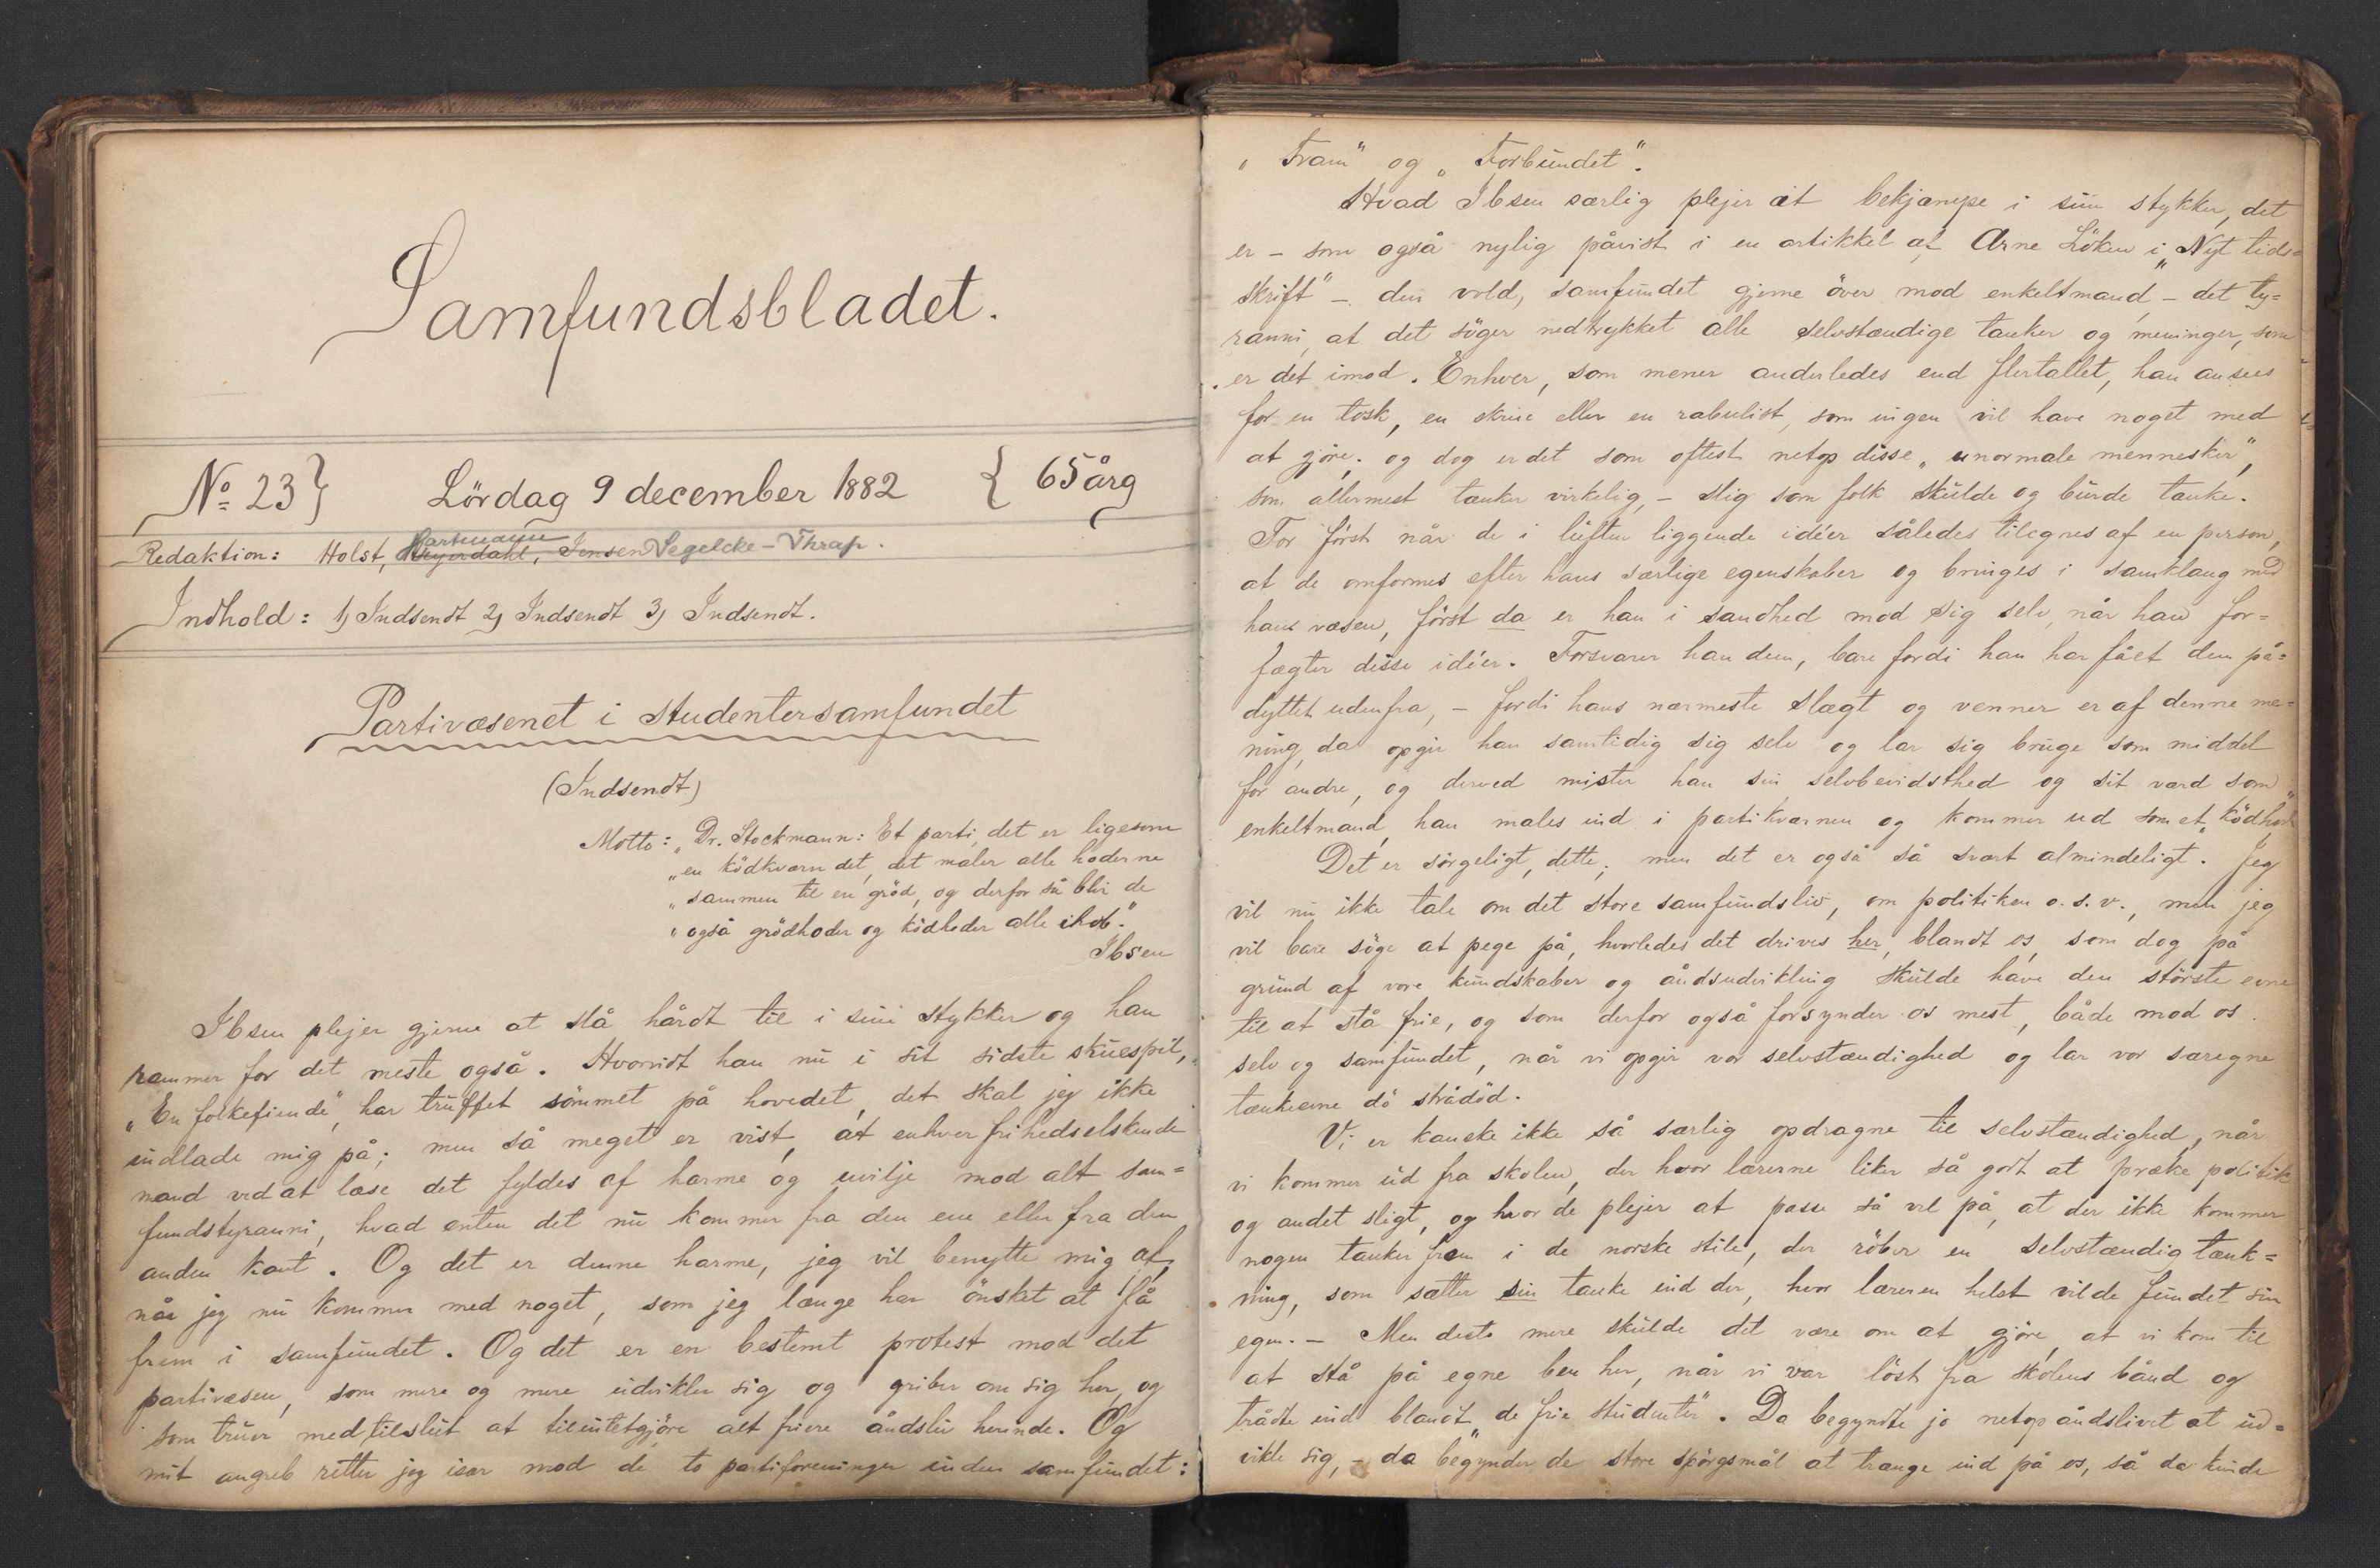 Samfundsbladet.
No 23} Lördag 9 december 1882 { 65 årg
Redaktion: Holst, Hartmann Heyerdahl, Jensen Segelcke - Thrap.
Indhold: 1) Indsendt 2) Indsendt 3) Indsendt.
Partivæsenet i studentersamfundet
(Indsendt)
Motto: „Dr. Stockmann: Et parti, det er ligesom
„en ködkværn det, det maler alle hoderne
„sammen til en gröd, og derfor så blir de
„også grödhoder og ködhoder alle ihob."
Ibsen
Ibsen plejer gjerne at slå hårdt til i sine stykker og han
rammer for det meste også. Hvorvidt han nu i sit sidste skuespil,
„En folkefiende", har truffet sömmet på hovedet, det skal jeg ikke
indlade mig på; men så meget er vist, at enhver frihedselskende
mand ved at læse det fyldes af harme og uvilje mod alt sam=
fundstyranni, hvad enten det nu kommer fra den ene eller fra den
anden kant. Og det er denne harme, jeg vil benytte mig af,
når jeg nu kommer med noget, som jeg længe har önsket at få
frem i samfundet. Og det er en bestemt protest mod det
partivæsen, som mere og mere udvikler sig og griber om sig her, og
som truer med tilslut at tilintetgjöre alt friere åndsliv herinde. Og
mit angreb retter jeg især mod de to partiforeninger inden samfundet:
„Fram" og „Forbundet".
Hvad Ibsen særlig plejer at bekjæmpe i sine stykker, det
er – som også nylig påvist i en artikkel af Arne Löken i „Nyt tids=
skrift" – den vold, samfundet gjerne över mod enkeltmand, – det ty=
ranni, at det söger nedtrykket alle selvstændige tanker og meninger, som
er det imod. Enhver, som mener anderledes end flertallet, han ansees
for en tosk, en skrue eller en rabulist, som ingen vil have noget med
at gjöre; og dog er det som oftest netop disse „unormale mennesker",
som allermest tænker virkelig, – slig som folk skulde og burde tænke.
For först når de i luften liggende idéer således tilegnes af en person,
at de omformes efter hans særlige egenskaber og bringes i samklang med
hans væsen, först da er han i sandhed mod sig selv, når han for=
fægter disse idéer. Forsvarer han dem, bare fordi han har fået dem på=
dyttet udenfra, – fordi hans nærmeste slægt og venner er af denne me=
ning, da opgir han samtidig sig selv og lar sig bruge som middel
for andre, og derved mister han sin selvbevidsthed og sit værd som
enkeltmand, han males ind i partikværnen og kommer ud som et „ködhode"
Det er sörgeligt, dette; men det er også så svært almindeligt. Jeg
vil nu ikke tale om det store samfundsliv, om politiken o.s.v., men jeg
vil bare söge at pege på, hvorledes det drives her, blandt os, som dog på
grund af vore kundskaber og åndsudvikling skulde have den störste evne
til at stå frie, og som derfor også forsynder os mest, både mod os
selv og samfundet, når vi opgir vor selvstændighed og lar vor særegne
tænkeevne dö strådöd.
Vi er kanske ikke så særlig opdragne til selvstændighed, når
vi kommer ud fra skolen, der hvor lærerne liker så godt at præke politik
og andet sligt, og hvor de plejer at passe så vel på, at der ikke kommer
nogen tanker frem i de norske stile, der röber en selvstændig tænk=
ning, som sætter sin tanke ind der, hvor læreren helst vilde fundet sin
egen. – Men desto mere skulde det være om at gjöre, at vi kom til
at stå på egne ben her, når vi var löst fra skolens bånd og
trådte ind blandt „de frie studenter". Da begyndte jo netop åndslivet at ud=
vikle sig, – da begynder de store spörgsmål at trænge ind på os, så da kunde